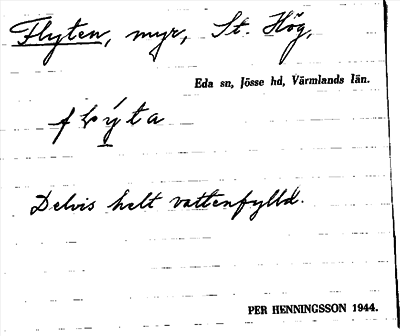 Flyten, myr, St. Hög,
Eda sn, Jösse hd, Värmlands län.
Delvis helt vattenfylld.
PER HENNINGSSON 1944.